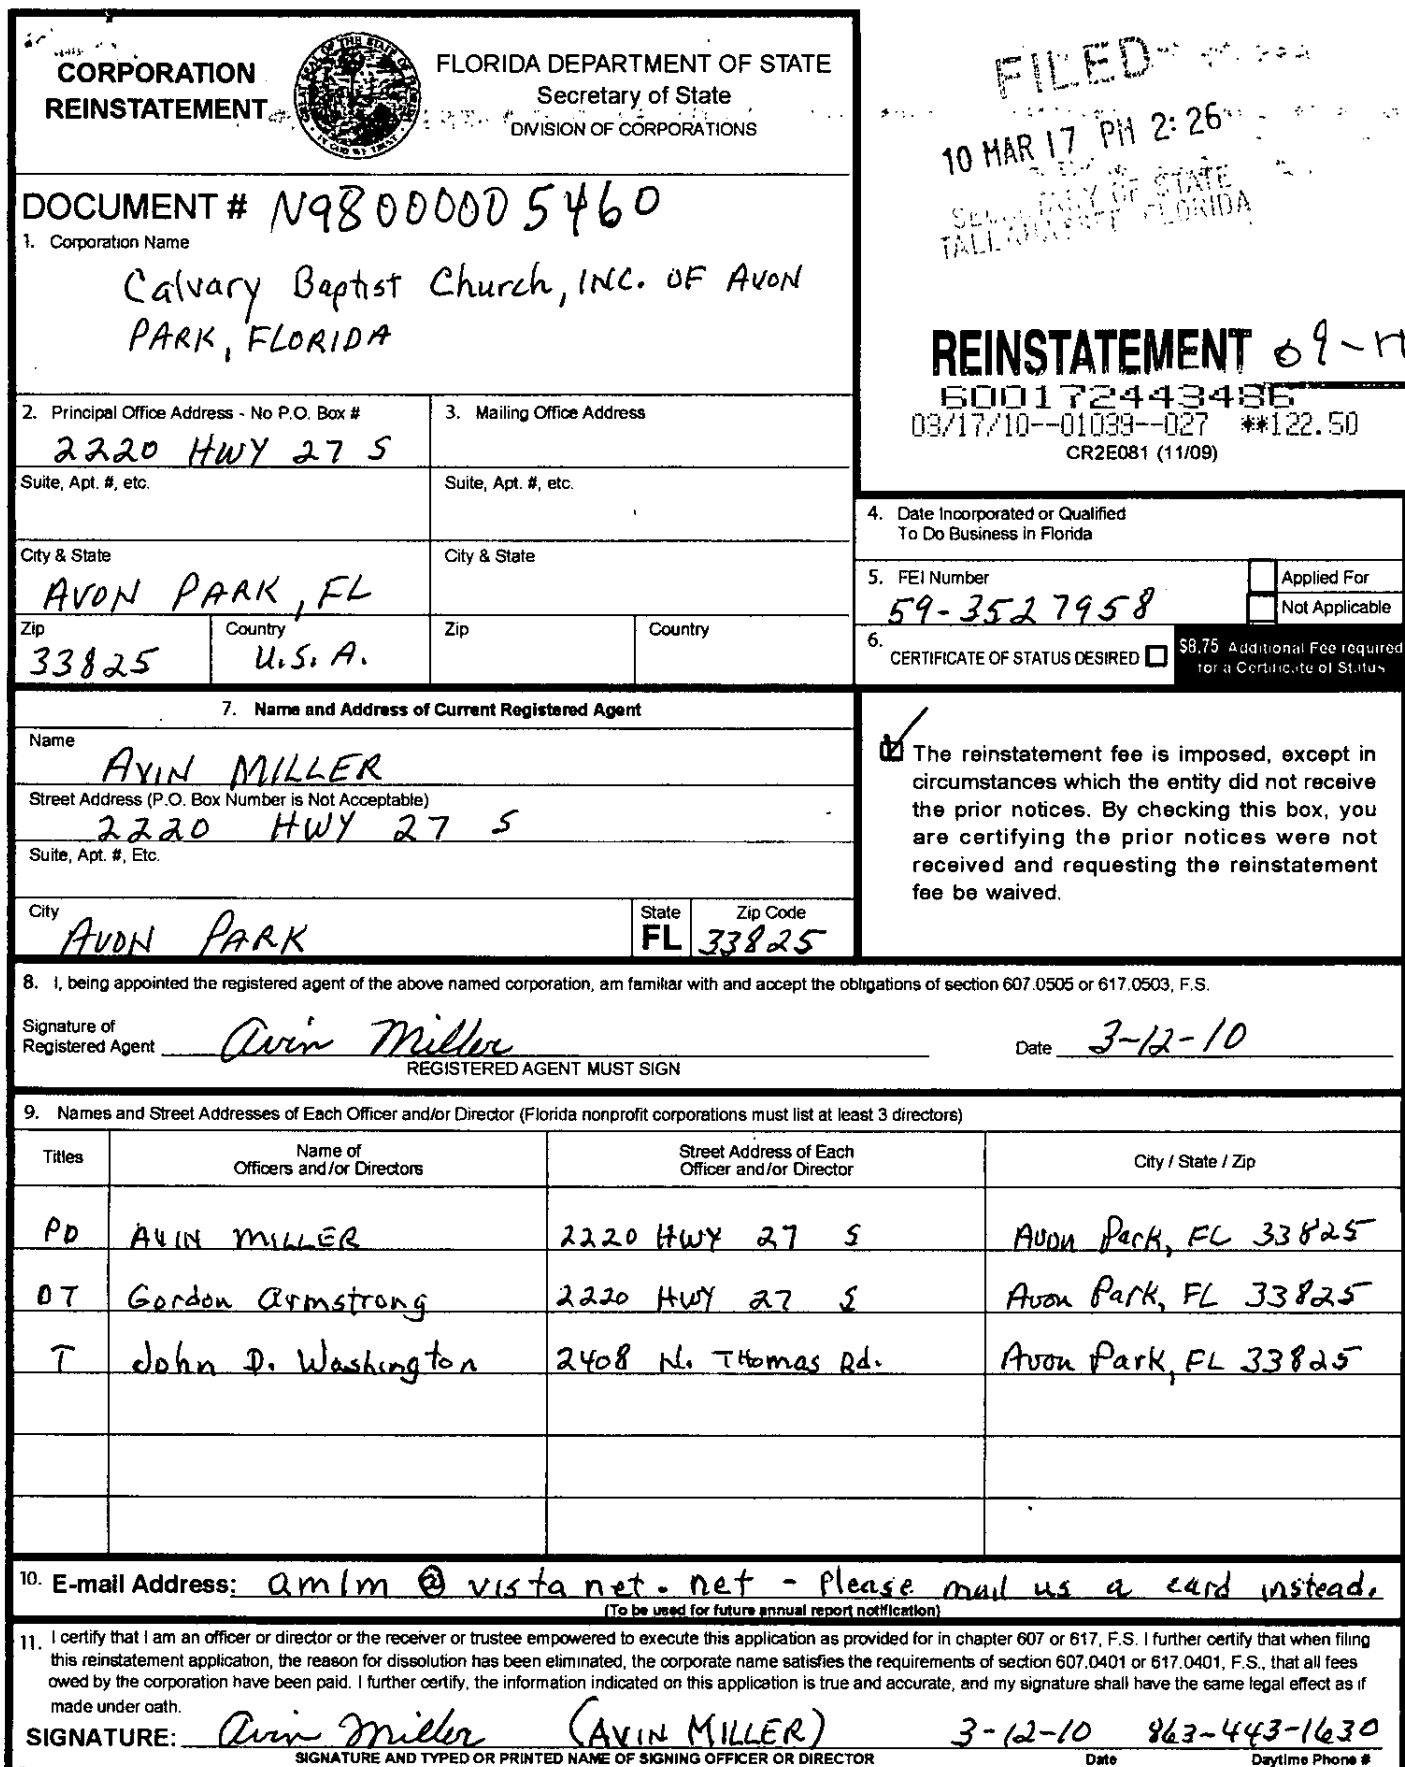 CORPORATION
REINSTATEMENT
FLORIDA DEPARTMENT OF STATE
Secretary of State
DIVISION OF CORPORATIONS
FILED
10 MAR 17 PM 2:26
OF STATE
TALLAHASSEE FLORIDA
DOCUMENT # N98000005460
1. Corporation Name
Calvary Baptist Church, INC. OF AVON
PARK, FLORIDA
REINSTATEMENT 09-
600172443486
03/17/10--01039--027 **122.50
CR2E081 (11/09)
2. Principal Office Address - No P.O. Box #
2220 HWY 27 S
3. Mailing Office Address
Suite, Apt. #, etc.
Suite, Apt. #, etc.
City & State
AVON PARK, FL
City & State
Zip
33825
Country
U.S.A.
Zip
Country
4. Date Incorporated or Qualified
To Do Business in Florida
5. FEI Number
59-3527958
Applied For
Not Applicable
6. CERTIFICATE OF STATUS DESIRED
$8.75 Additional Fee required
for a Certificate of Status
7. Name and Address of Current Registered Agent
Name
AVIN MILLER
Street Address (P.O. Box Number is Not Acceptable)
2220 HWY 27 S
Suite, Apt. #, Etc.
City
AVON PARK
State
FL
Zip Code
33825
The reinstatement fee is imposed, except in
circumstances which the entity did not receive
the prior notices. By checking this box, you
are certifying the prior notices were not
received and requesting the reinstatement
fee be waived.
8. I, being appointed the registered agent of the above named corporation, am familiar with and accept the obligations of section 607.0505 or 617.0503, F.S.
Signature of
Registered Agent Avin Miller
REGISTERED AGENT MUST SIGN
Date 3-12-10
9. Names and Street Addresses of Each Officer and/or Director (Florida nonprofit corporations must list at least 3 directors)
Titles
Name of
Officers and/or Directors
Street Address of Each
Officer and/or Director
City / State / Zip
PD AVIN MILLER 2220 HWY 27 S Avon Park, FL 33825
DT Gordon Armstrong 2220 HWY 27 S Avon Park, FL 33825
T John D. Washington 2408 N. THomas Rd. Avon Park, FL 33825
10. E-mail Address: amlm @ vistanet.net - Please mail us a card instead.
(To be used for future annual report notification)
11. I certify that I am an officer or director or the receiver or trustee empowered to execute this application as provided for in chapter 607 or 617, F.S. I further certify that when filing
this reinstatement application, the reason for dissolution has been eliminated, the corporate name satisfies the requirements of section 607.0401 or 617.0401, F.S., that all fees
owed by the corporation have been paid. I further certify, the information indicated on this application is true and accurate, and my signature shall have the same legal effect as if
made under oath.
SIGNATURE: Avin Miller (AVIN MILLER) 3-12-10 863-443-1630
SIGNATURE AND TYPED OR PRINTED NAME OF SIGNING OFFICER OR DIRECTOR Date Daytime Phone #